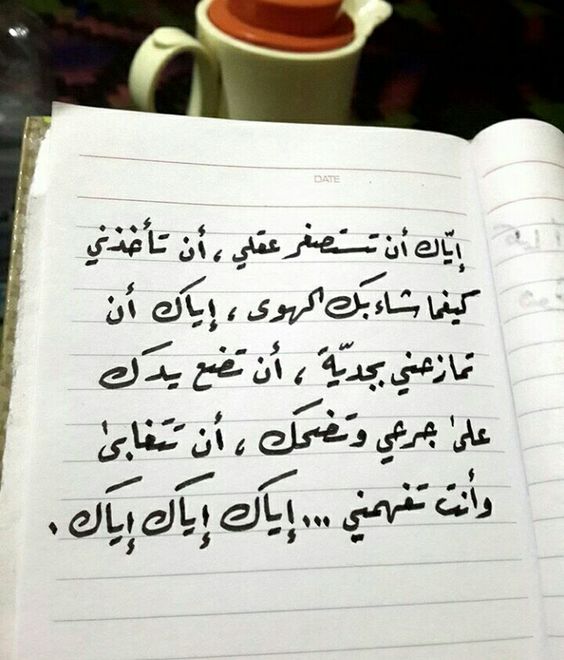 DATE
إيّاك أن تستصغر عقلي ، أن تأخذني
كيفما شاء بك الهوى ، إياك أن
تمازحني بجديّة ، أن تضع يدك
على جرحي وتضحك ، أن تتغابى
وأنت تفهمني ... إياك إياك إياك .